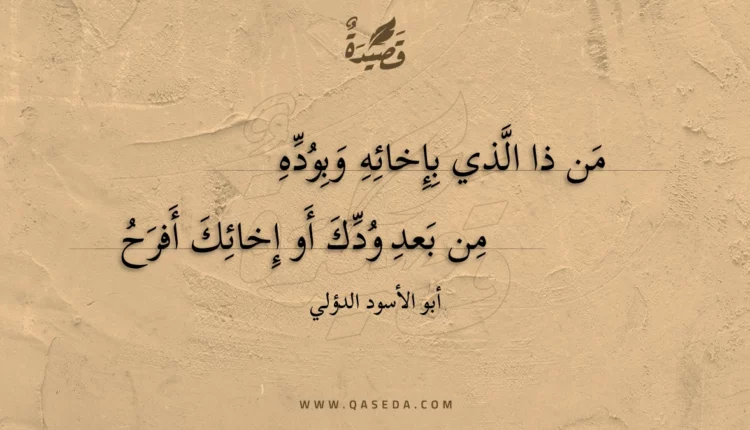 قَصِيدَةٌ
مَن ذا الَّذي بِإِخائِهِ وَبِوُدِّهِ
مِن بَعدِ وُدِّكَ أَو إِخائِكَ أَفرَحُ
أبو الأسود الدؤلي
WWW.QASEDA.COM